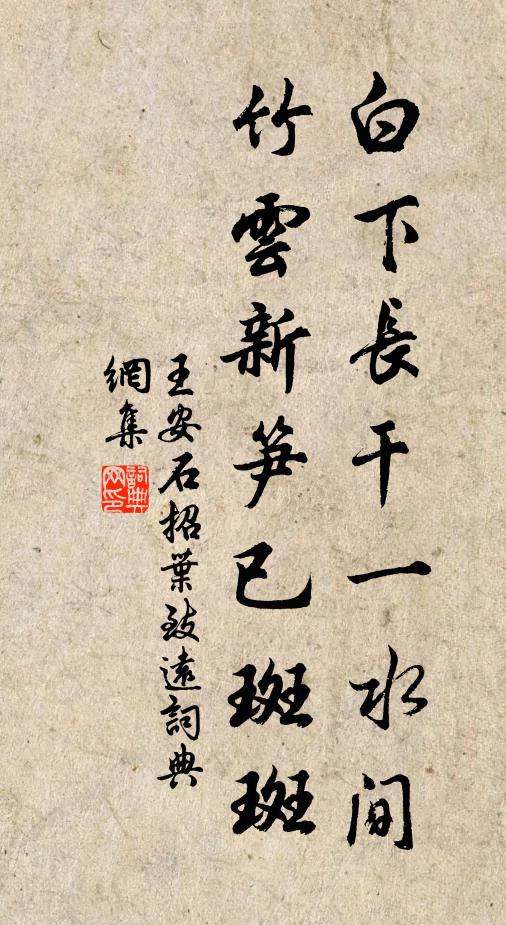 白下長干一水間
竹雲新笋已斑斑
王安石招葉致遠詞典
網集
詞典網印